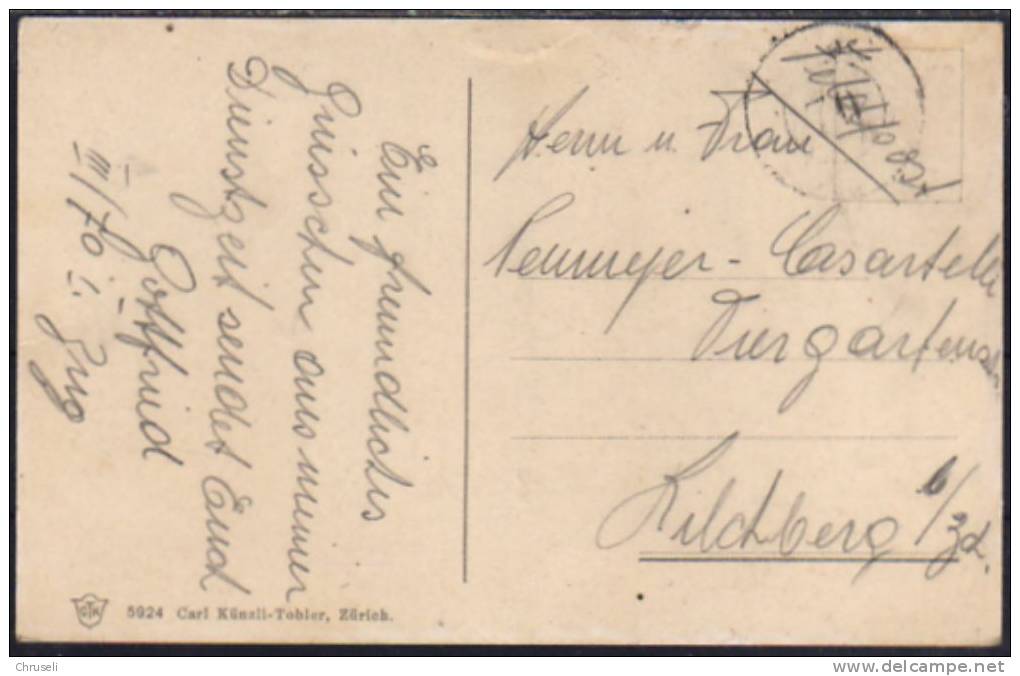 Ein freundliches
Grüsschen aus meiner
Dienstzeit sendet Euch
Gottfried
III/70 i. Zug
Herrn u. Frau
Neumeyer-Casartelli
Tiergartenstr
Kilchberg b/Zch.
5924 Carl Künzli-Tobler, Zürich.
Chruseli
www.delcampe.net